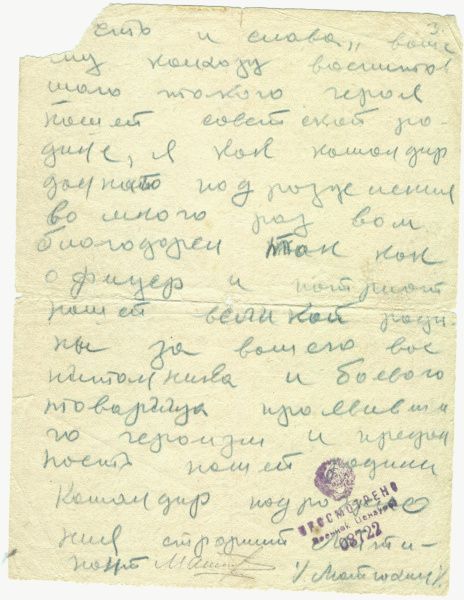 3.
есть и слава, ваше
му колхозу воспитав
шего такого героя
нашей советской ро-
дине, я как командир
данного подразделения
во много раз вам
благодарен так как
офицер и патриот
нашей великой роди-
ны за вашего вос
питанника и боевого
товарища проявивши
го героизм и предан
ность нашей родини
Командир подразделе
ния старший лейти-
нант
ПРОСМОТРЕНО
Военной Цензурой
08722